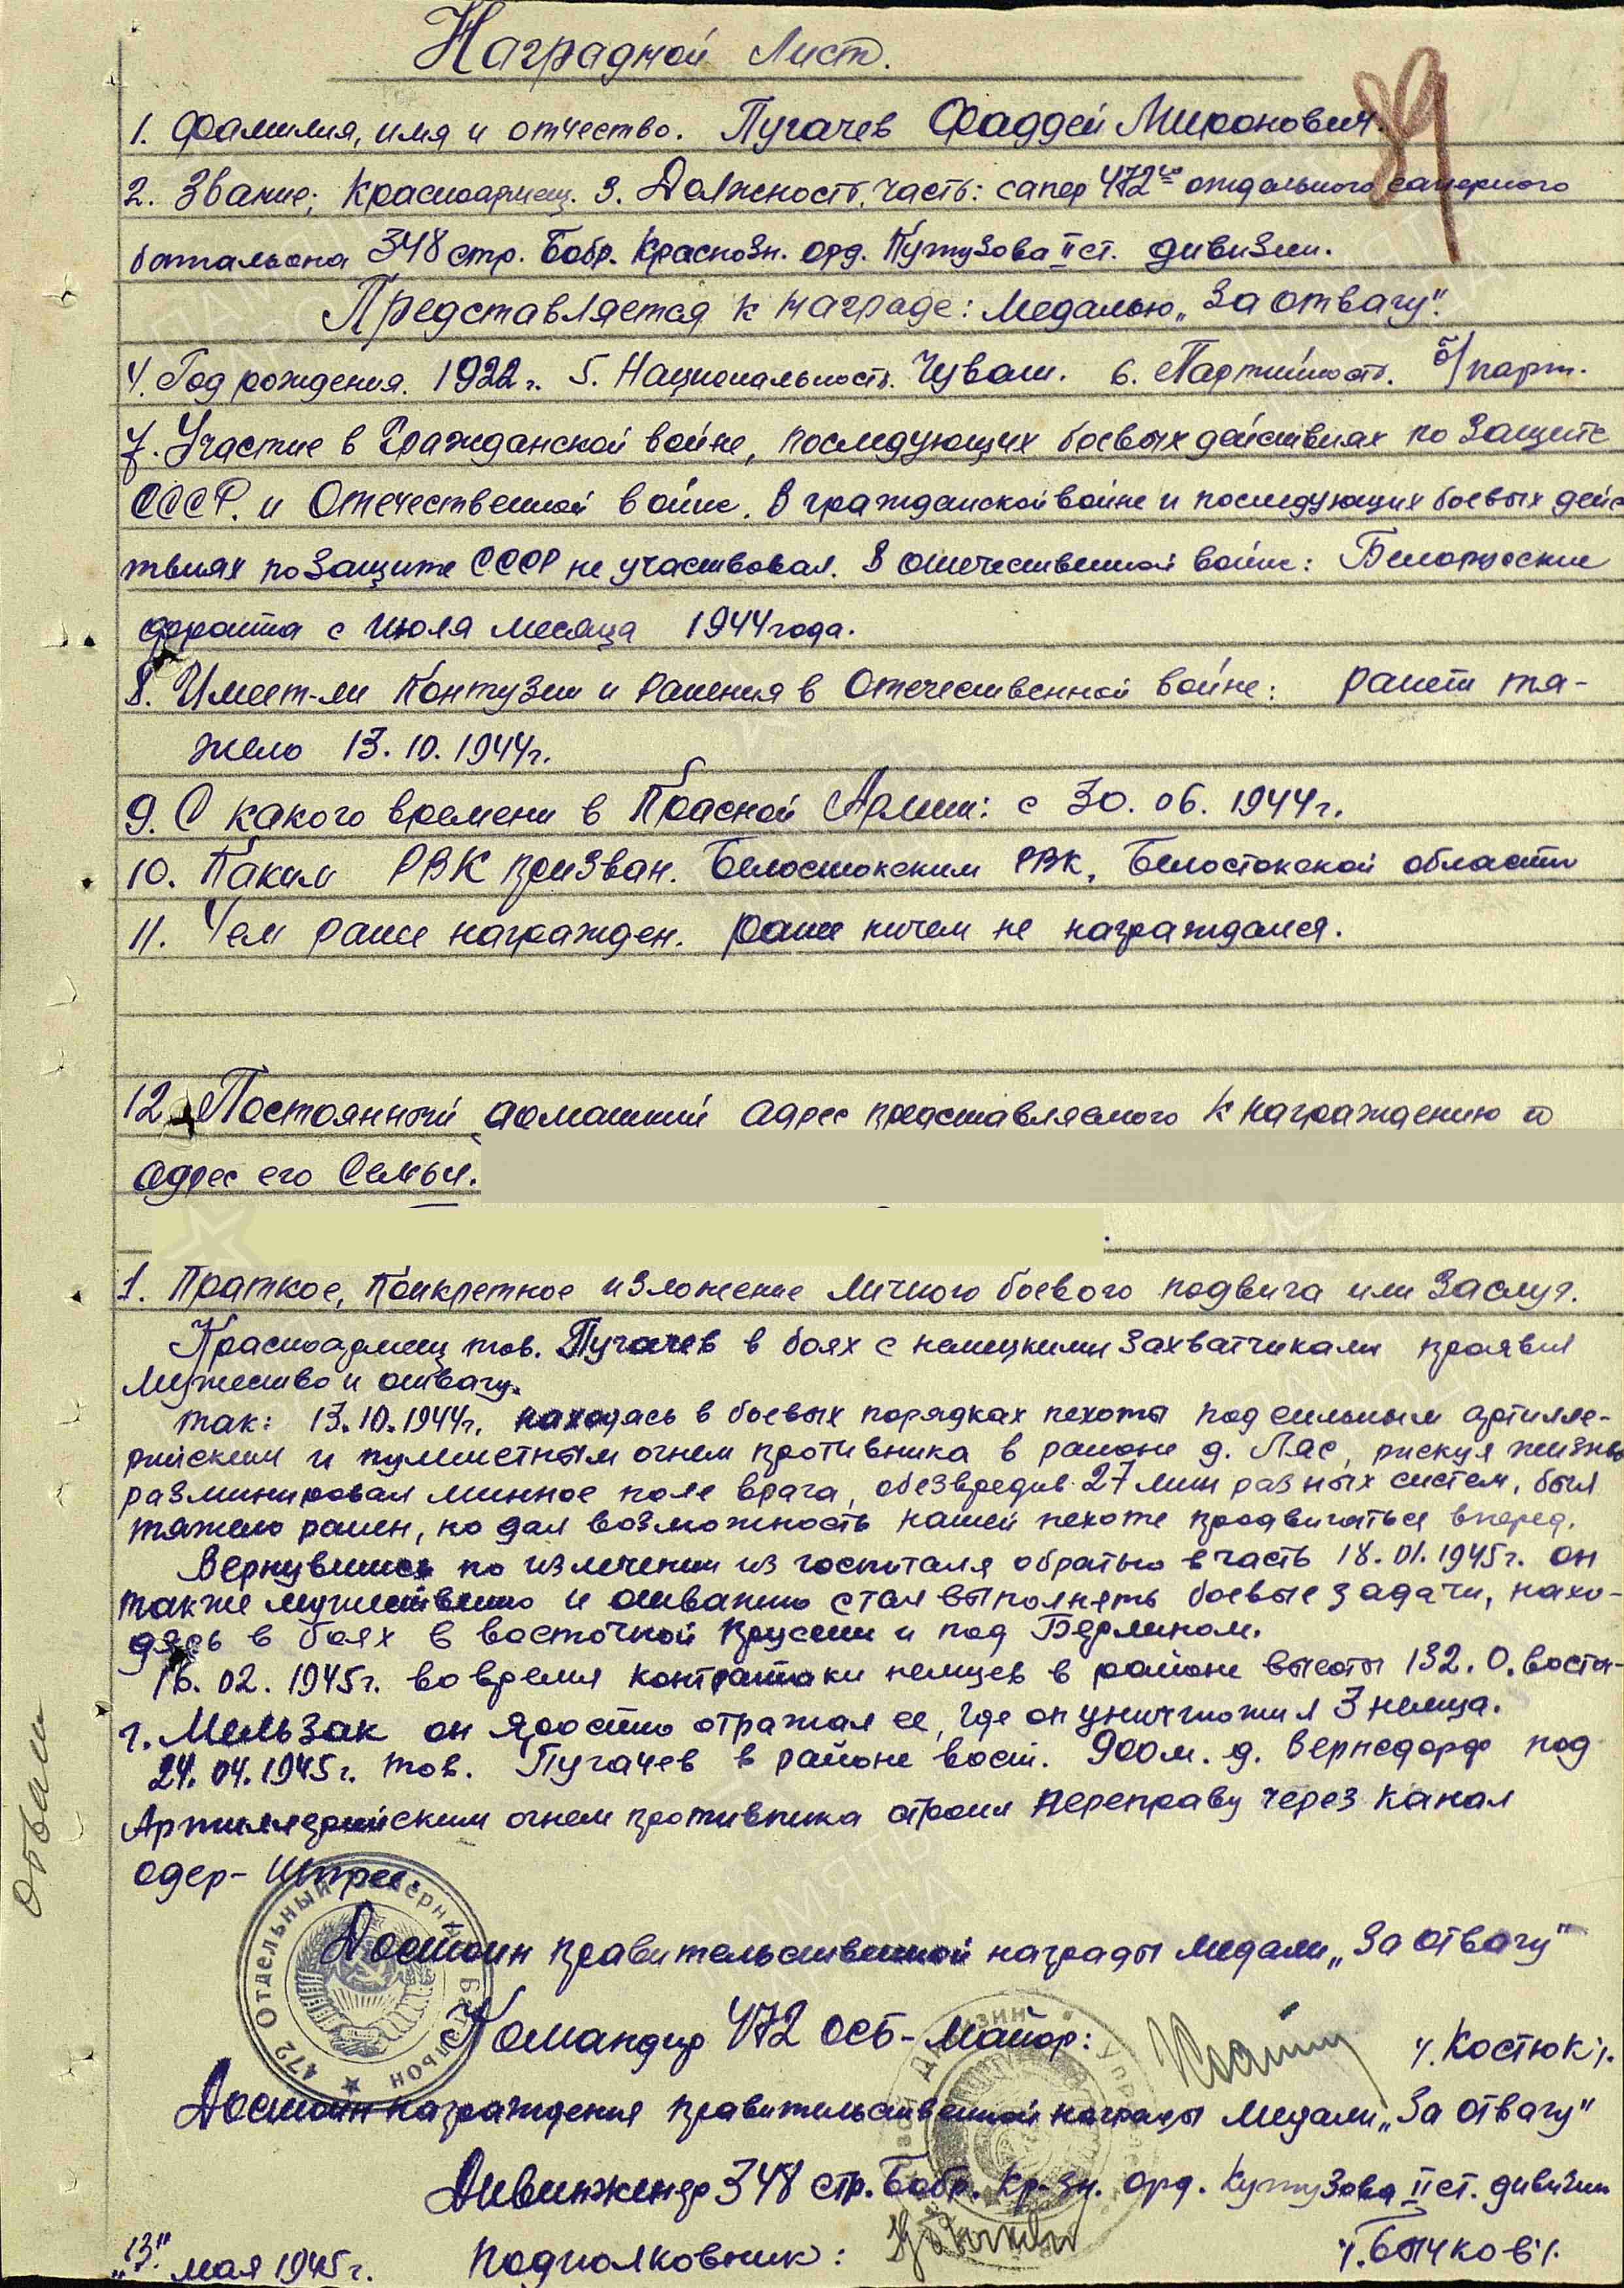 Наградной Лист.
89
1. Фамилия, имя и отчество. Пугачев Фаддей Миронович.
2. Звание; Красноармеец. 3. Должность, часть: сапер 472го отдельного саперного
батальона 348 стр. Бобр. Краснозн. орд. Кутузова II ст. дивизии.
Представляется к награде: Медалью „За отвагу".
4. Год рождения. 1922 г. 5. Национальность. Чуваш. 6. Партийность. б/парт.
7. Участие в Гражданской войне, последующих боевых действиях по защите
СССР. и Отечественной войне. В гражданской войне и последующих боевых дейс
твиях по защите СССР не участвовал. В отечественной войне: Белорусские
фронта с июля месяца 1944 года.
8. Имеет-ли Контузии и ранения в Отечественной войне: ранен тя-
жело 13.10.1944г.
9. С какого времени в Красной Армии: с 30.06.1944г.
10. Каким РВК призван. Белостокским РВК, Белостокской области
11. Чем ранее награжден. ранее ничем не награждался.
12. Постоянный домашний адрес представляемого к награждению и
адрес его Семьи.
1. Краткое, Конкретное изложение личного боевого подвига или Заслуг.
Красноармеец тов. Пугачев в боях с немецкими захватчиками проявил
мужество и отвагу.
так: 13.10.1944г. находясь в боевых порядках пехоты под сильным артилле-
рийским и пулеметным огнем противника в районе д. Ляс, рискуя жизнью
разминировал минное поле врага, обезвредив 27 мин разных систем, был
тяжело ранен, но дал возможность нашей пехоте продвигаться вперед.
Вернувшись по излечении из госпиталя обратно в часть 18.01.1945г. он
также мужественно и отважно стал выполнять боевые задачи, нахо-
дясь в боях в восточной Пруссии и под Берлином.
16.02.1945г. во время контратаки немцев в районе высоты 132.0. восточ-
г. Мельзак он яростно отражал ее, где он уничтожил 3 немца.
24.04.1945г. тов. Пугачев в районе вост. 900м. д. Вернсдорф под
Артиллерийским огнем противника строил переправу через канал
одер-Шпрее.
Достоин правительственной награды медали „За отвагу"
Командир 472 осб-майор: /.Костюк/.
Достоин награждения правительственной награды Медали „За отвагу"
Дивинженер 348 стр. Бобр. Кр-зн. орд. Кутузова II ст. дивизии
„13" мая 1945г. подполковник: /.Бычков/.
472 Отдельный Саперный Батальон